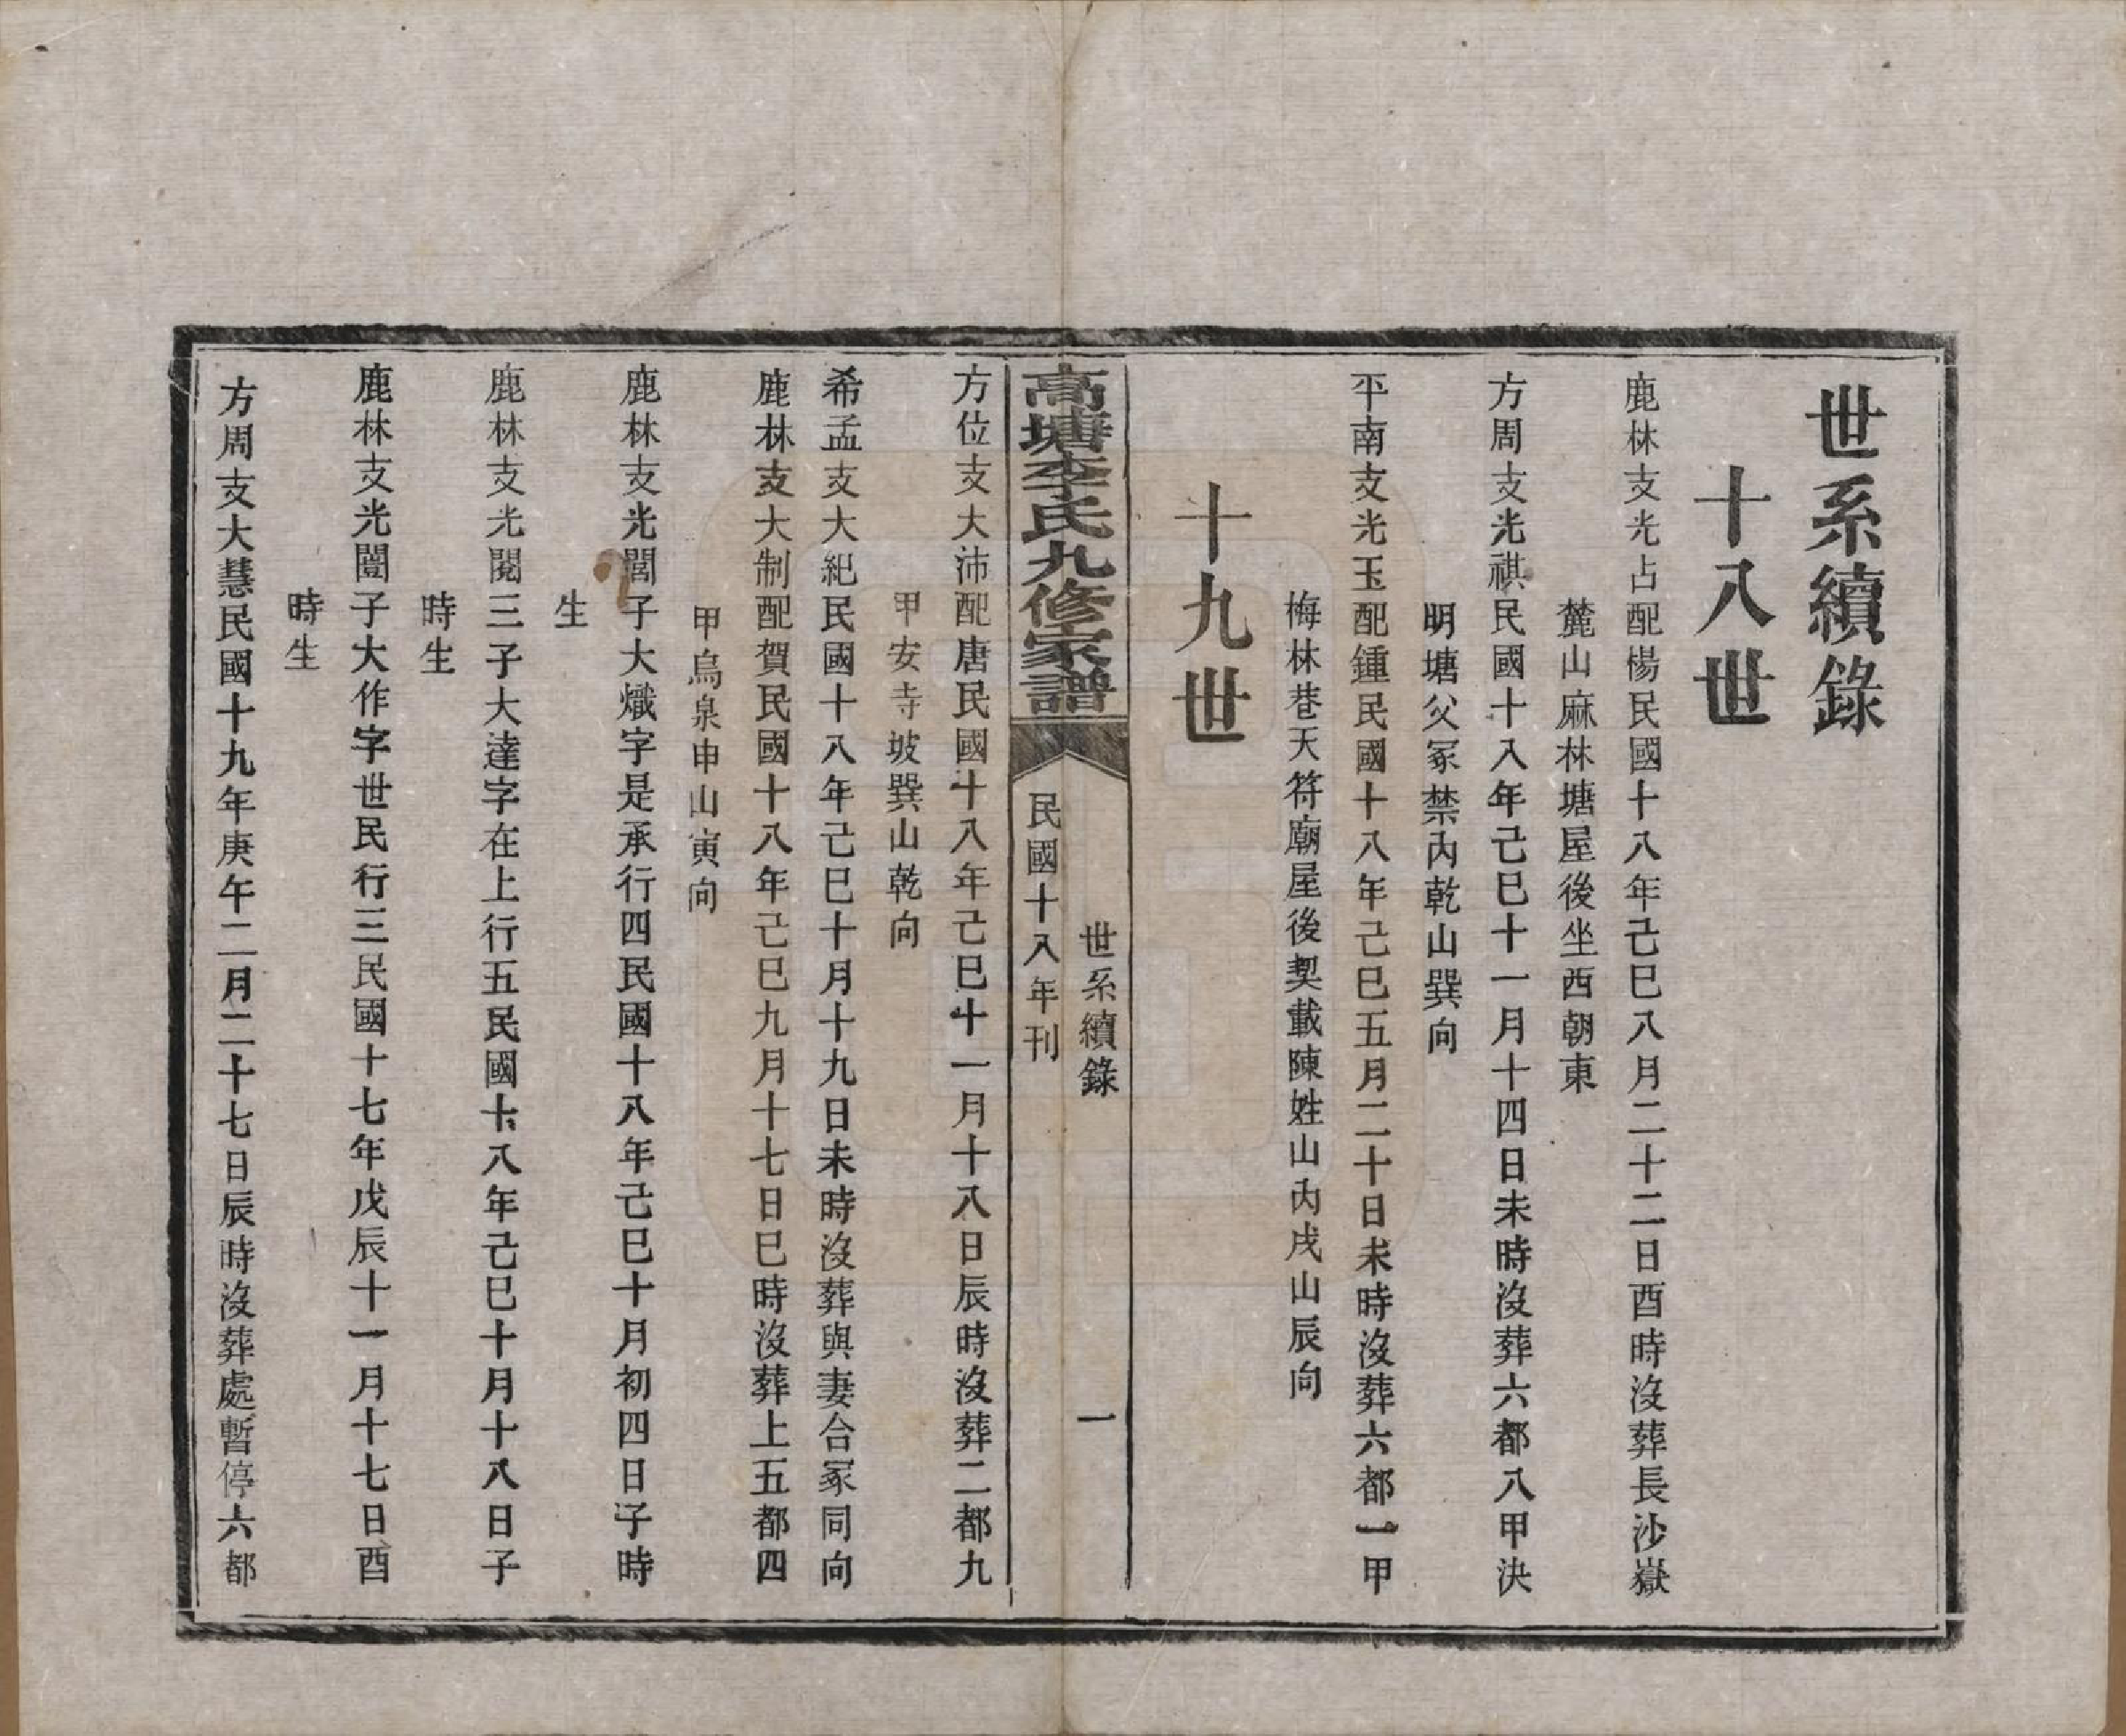 世系續錄
十八世
鹿林支光占配楊民國十八年己巳八月二十二日酉時沒葬長沙嶽
麓山麻林塘屋後坐西朝東
方周支光祺民國十八年己巳十一月十四日未時沒葬六都八甲決
明塘父冢禁內乾山巽向
平南支光玉配鍾民國十八年己巳五月二十日未時沒葬六都一甲
梅林巷天符廟屋後契載陳姓山內戌山辰向
十九世
高塘李氏九修家譜
世系續錄
一
民國十八年刊
方位支大沛配唐民國十八年己巳十一月十八日辰時沒葬二都九
甲安寺坡巽山乾向
希孟支大紀民國十八年己巳十月十九日未時沒葬與妻合冢同向
鹿林支大制配賀民國十八年己巳九月十七日巳時沒葬上五都四
甲烏泉申山寅向
鹿林支光閭子大熾字是承行四民國十八年己巳十月初四日子時
生
鹿林支光閱三子大達字在上行五民國十八年己巳十月十八日子
時生
鹿林支光闓子大作字世民行三民國十七年戊辰十一月十七日酉
時生
方周支大慧民國十九年庚午二月二十七日辰時沒葬處暫停六都